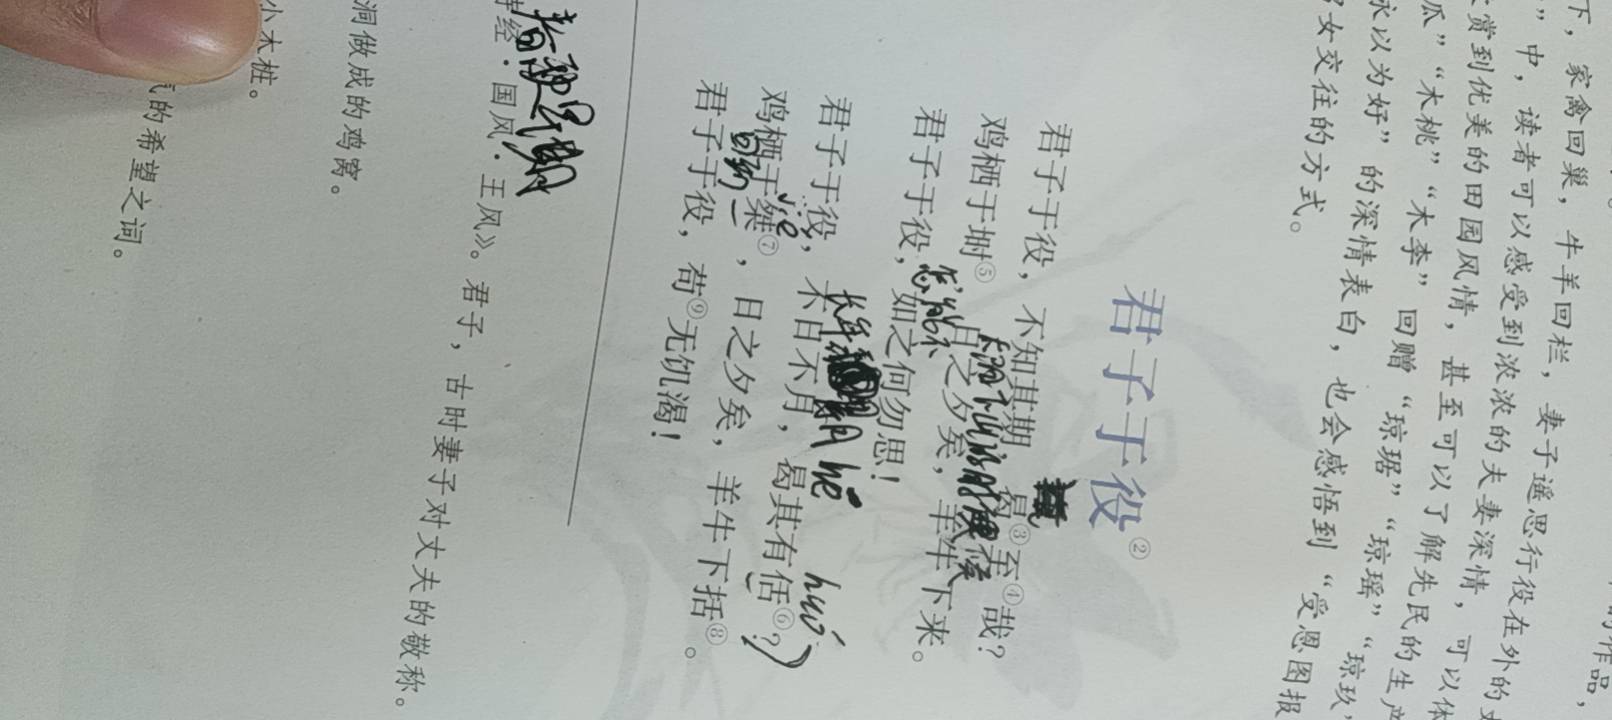 的作品，
下，家禽回巢，牛羊回栏，妻子遥思行役在外的
”中，读者可以感受到浓浓的夫妻深情，可以体
赏到优美的田园风情，甚至可以了解先民的生产
瓜”“木桃”“木李”回赠“琼琚”“琼瑶”“琼玖”
永以为好”的深情表白，也会感悟到“受恩图报
女交往的方式。
君子于役②
君子于役，不知其期 曷③至④哉？
太阳下山的时候
鸡栖于埘⑤ 日之夕矣，羊牛下来。
怎能不
君子于役，如之何勿思！
长年 hé huó
君子于役，不日不月，曷其有佸⑥？
jie
鸡栖于桀⑦，日之夕矣，羊牛下括⑧。
君子于役，苟⑨无饥渴！
诗经·国风·王风》。君子，古时妻子对丈夫的敬称。
洞做成的鸡窝。
小木桩。
的希望之词。